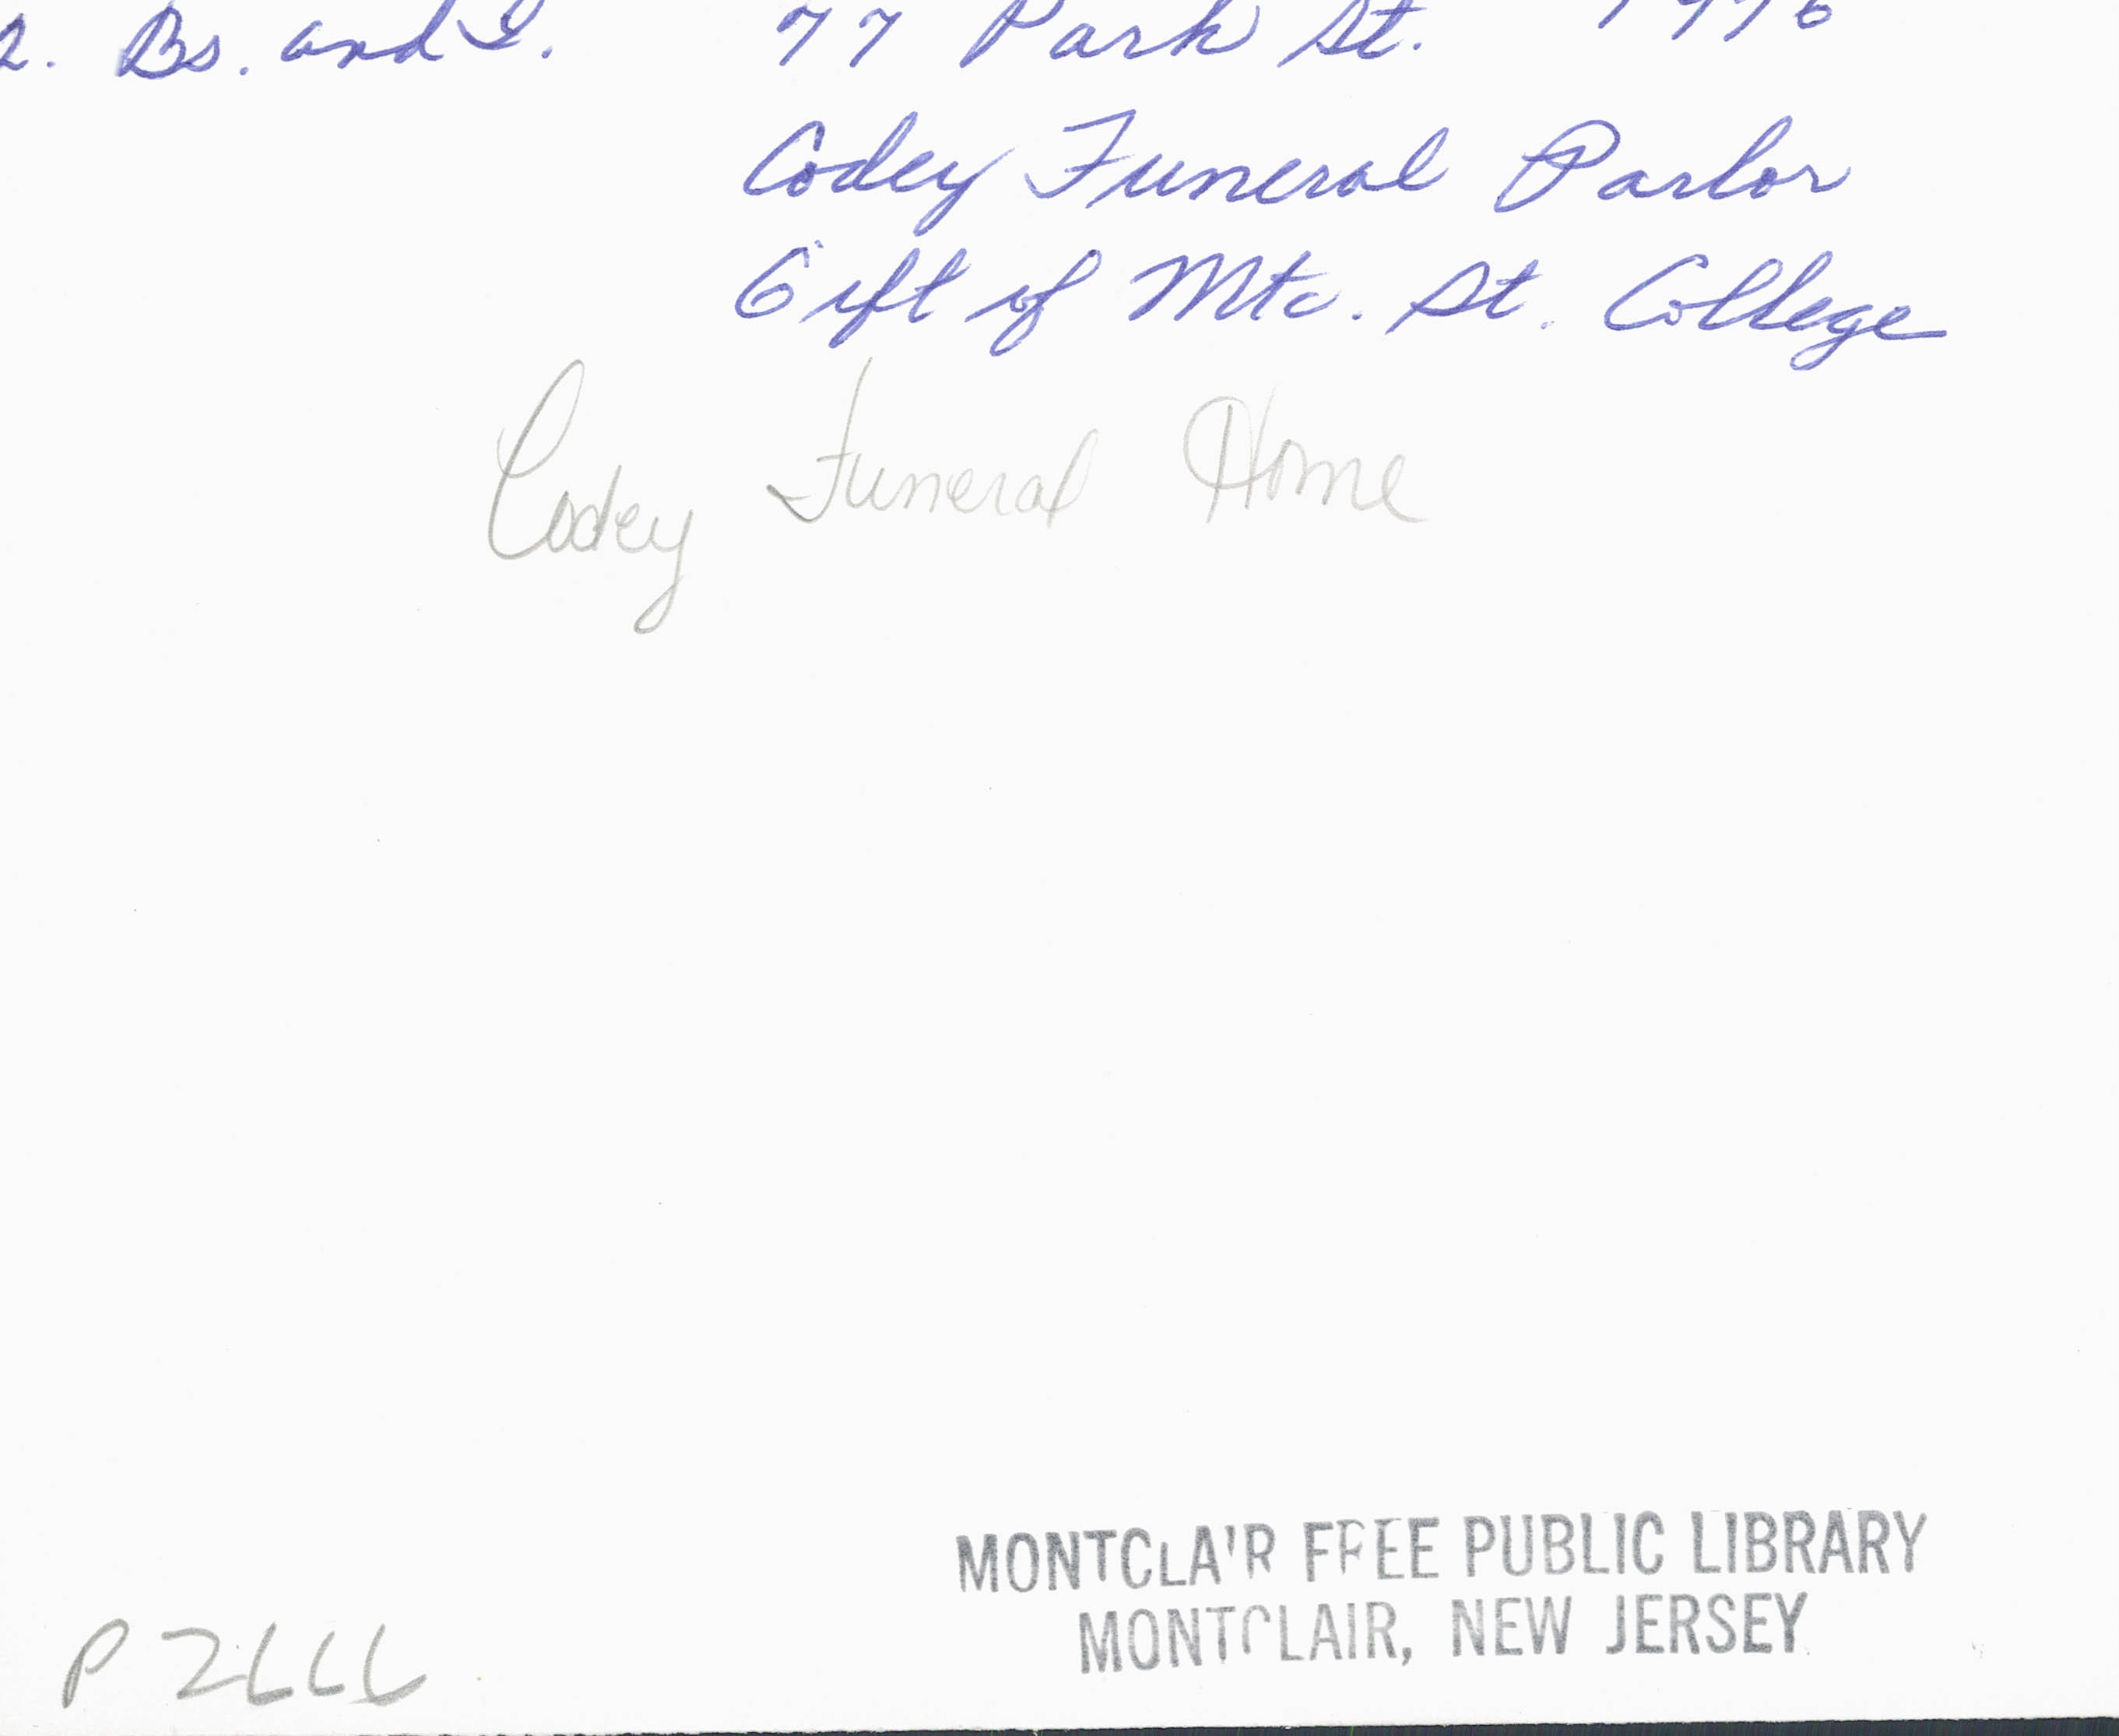 2. Bs. and I. 77 Park St. 1976
Codey Funeral Parlor
Gift of Mtc. St. College
Codey Funeral Home
MONTCLAIR FREE PUBLIC LIBRARY
MONTCLAIR, NEW JERSEY
P 2666